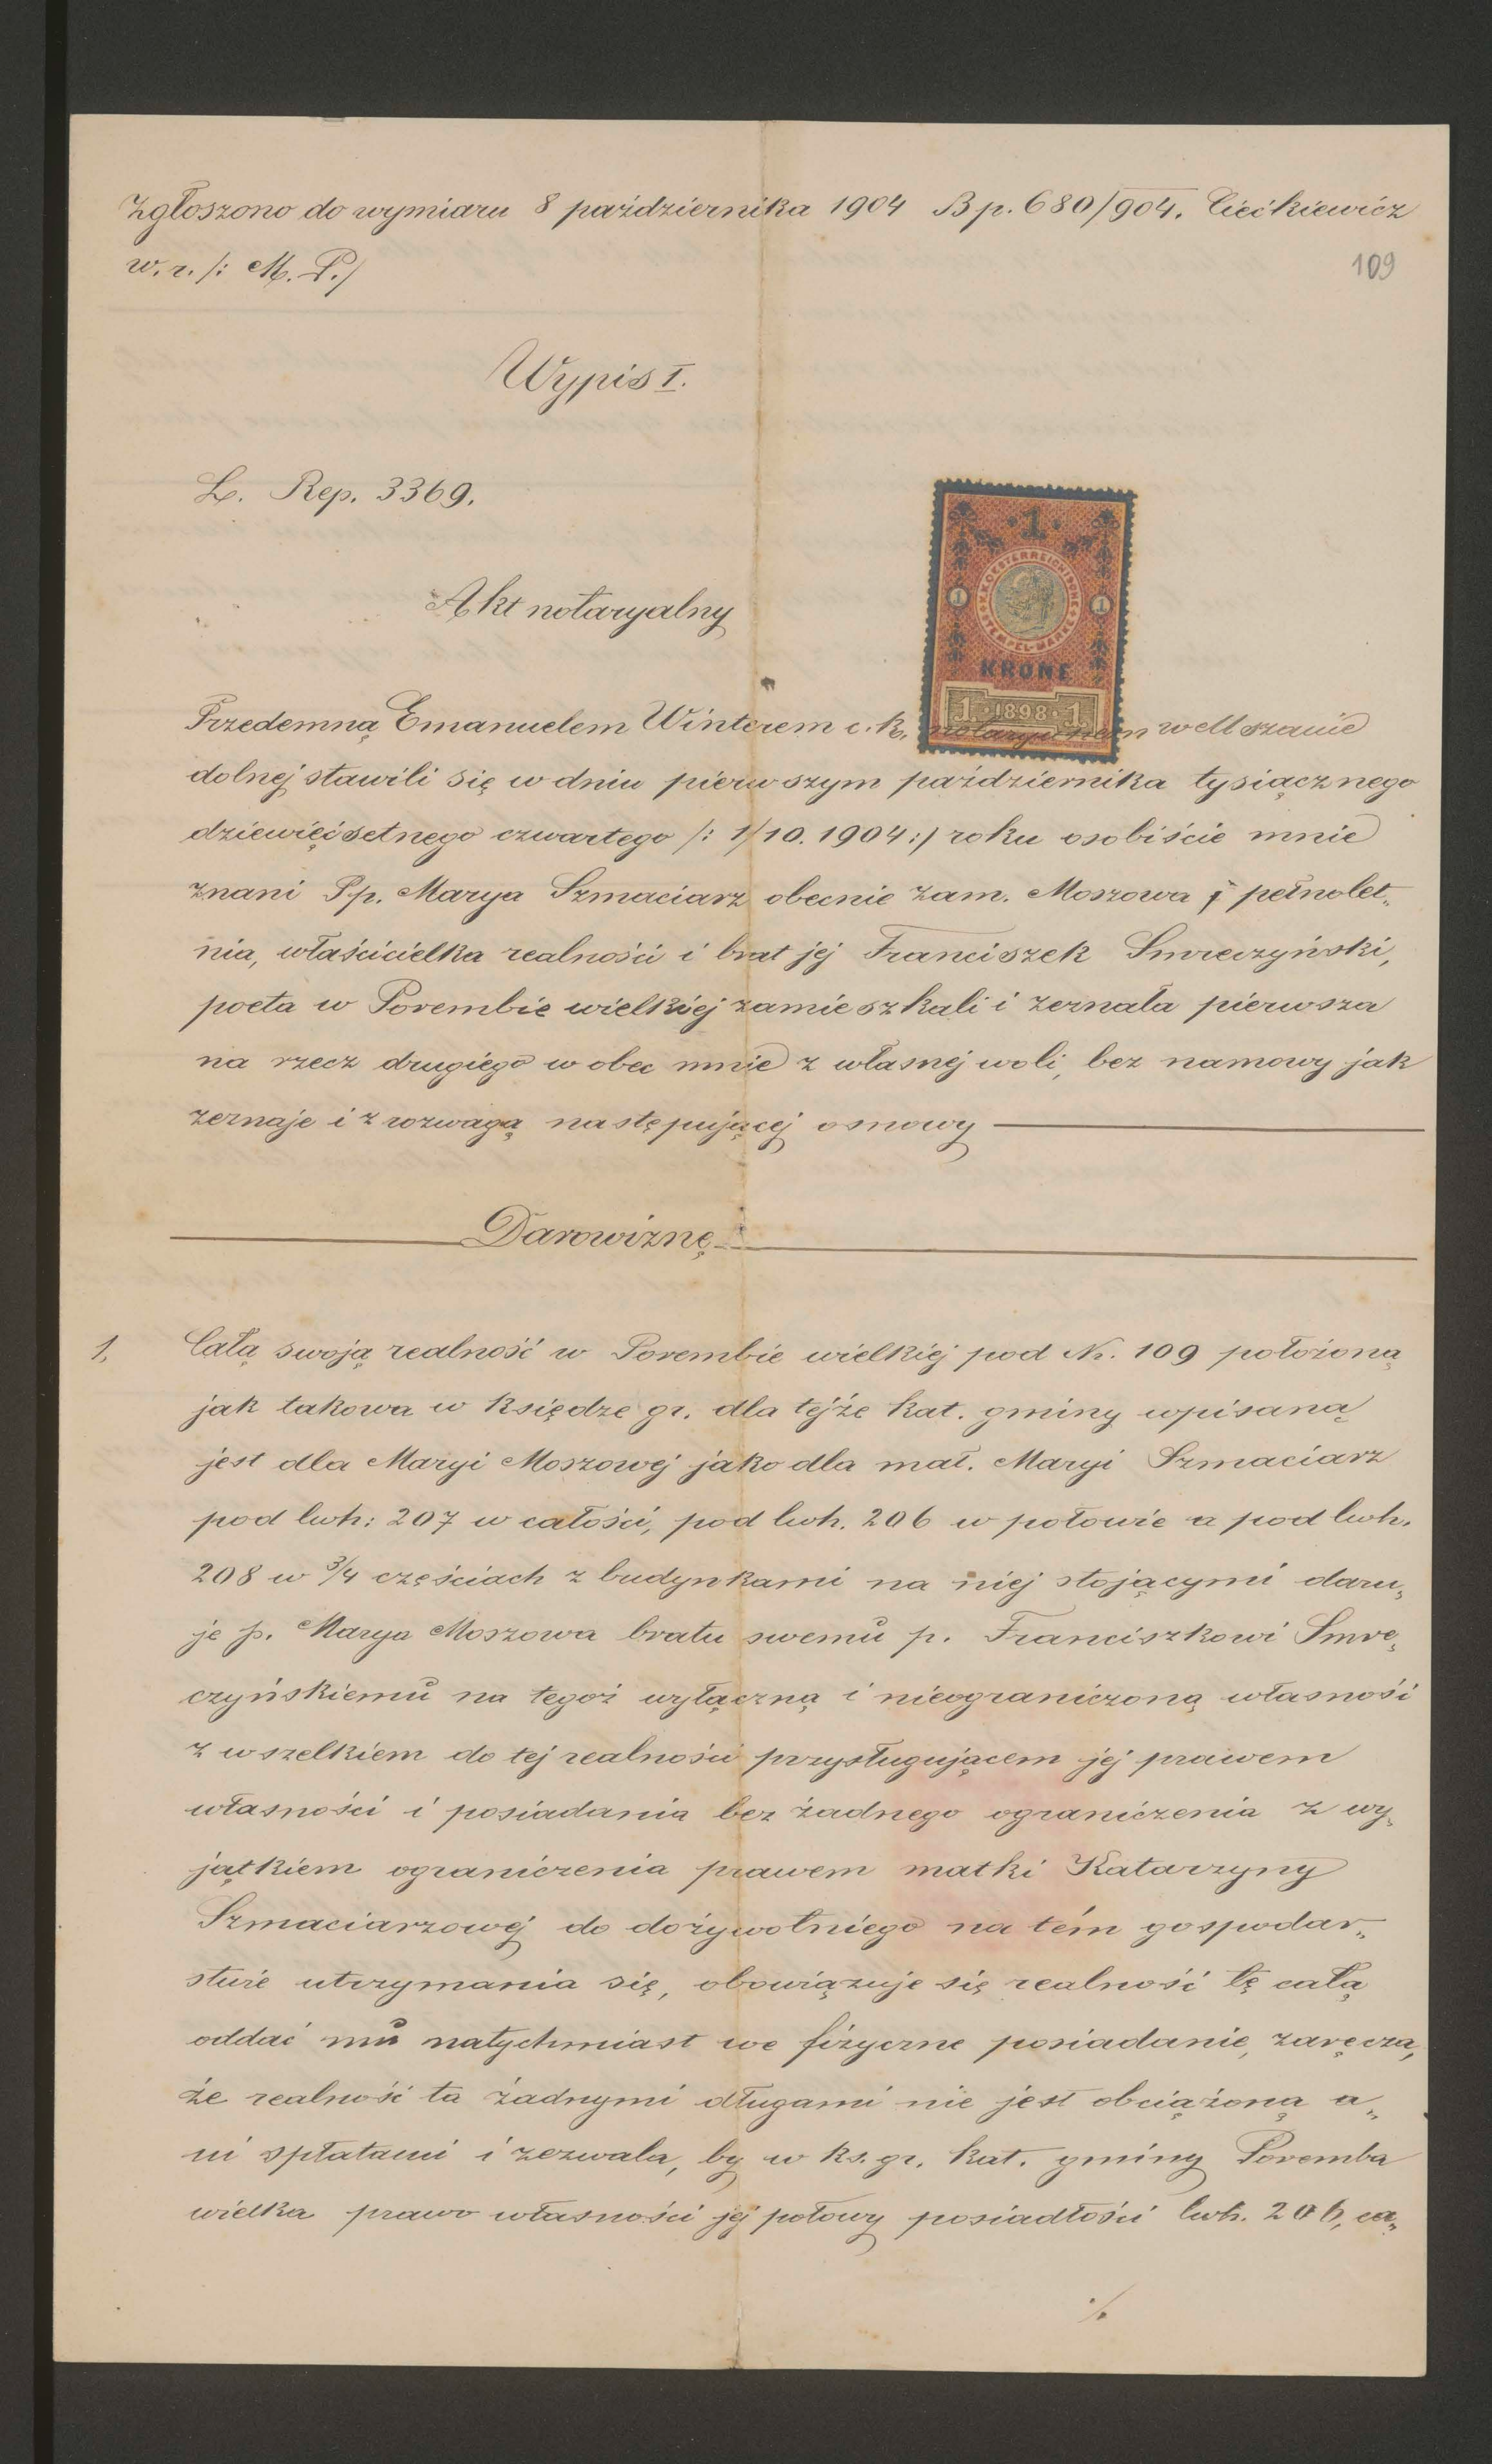 Zgłoszono do wymiaru 8 października 1904 B p. 680/904. Ciećkiewicz
w. r. /: M. P./
109
Wypis I.
L. Rep. 3369.
1
K.K. OESTERREICHISCHE STEMPEL-MARKE
1 1
KRONE
1 · 1898 · 1
Akt notaryalny
Przedemną Emanuelem Winterem c. k. notaryuszem w Mszanie
dolnej stawili się w dniu pierwszym października tysiącznego
dziewięćsetnego czwartego /: 1/10. 1904 :/ roku osobiście mnie
znani Pp. Marya Szmaciarz obecnie zam. Moszowa pełnolet„
nia, właścicielka realności i brat jej Franciszek Smreczyński,
poeta w Porembie wielkiej zamieszkali i zeznała pierwsza
na rzecz drugiego wobec mnie z własnej woli, bez namowy jak
zeznaje i z rozwagą następującej osnowy
Darowiznę
1. Całą swoją realność w Porembie wielkiej pod Nr. 109 położoną
jak takowa w księdze gr. dla tejże kat. gminy wpisaną
jest dla Maryi Moszowej jako dla mał. Maryi Szmaciarz
pod lwh: 207 w całości, pod lwh. 206 w połowie a pod lwh.
208 w 3/4 częściach z budynkami na niej stojącymi daru„
je p. Marya Moszowa bratu swemu p. Franciszkowi Smre„
czyńskiemu na tegoż wyłączną i nieograniczoną własność
z wszelkiem do tej realności przysługującem jej prawem
własności i posiadania bez żadnego ograniczenia z wy„
jątkiem ograniczenia prawem matki Katarzyny
Szmaciarzowej do dożywotniego na tém gospodar„
stwie utrzymania się, obowiązuje się realność tę całą
oddać mu natychmiast we fizyczne posiadanie, zaręcza,
że realność ta żadnymi długami nie jest obciążoną a„
ni spłatami i zezwala, by w ks. gr. kat. gminy Poremba
wielka prawo własności jej połowy posiadłości lwh. 206, ca„
./.